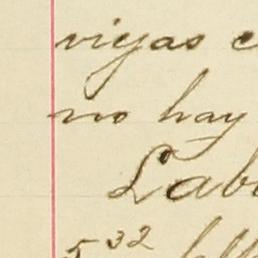 vigas
no hay
Lab
5 32